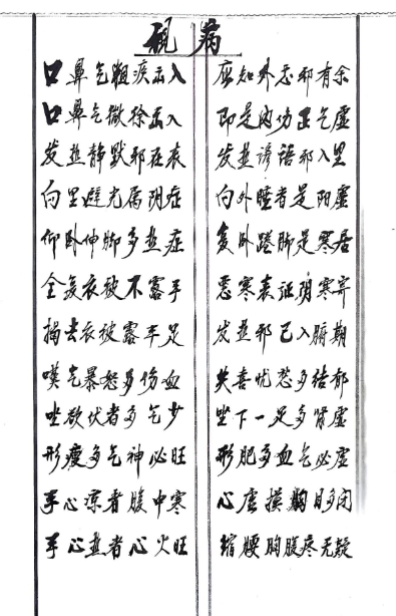 視病
口鼻气粗疾出入 应知外感邪有余
口鼻气微徐出入 即是内伤正气虚
发热静默邪在表 发热谵语邪入里
向里避光属阴症 向外睡者是阳虚
仰卧伸脚多热症 卧蜷脚是寒居
全衣被不露手 恶寒表证阴寒
揭去衣被露手足 发热邪已入腑期
嘆气暴怒多伤血 失喜忧愁多结郁
坐欲伏者多气少 坐下一足多肾虚
形瘦多气神必旺 形肥多血气必虚
手心凉者腹中寒 心虚摸胸目多闭
手心热者心火旺 缩腰胸腹疼无疑